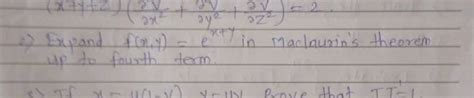 (x²+y+z) (∂²V/∂x² + ∂²V/∂y² + ∂²V/∂z²) = 2.
2) Expand f(x,y) = e^(x+y) in Maclaurin's theorem
up to fourth term.
3) If x = u(1-v), y = uv Prove that JJ'=1.